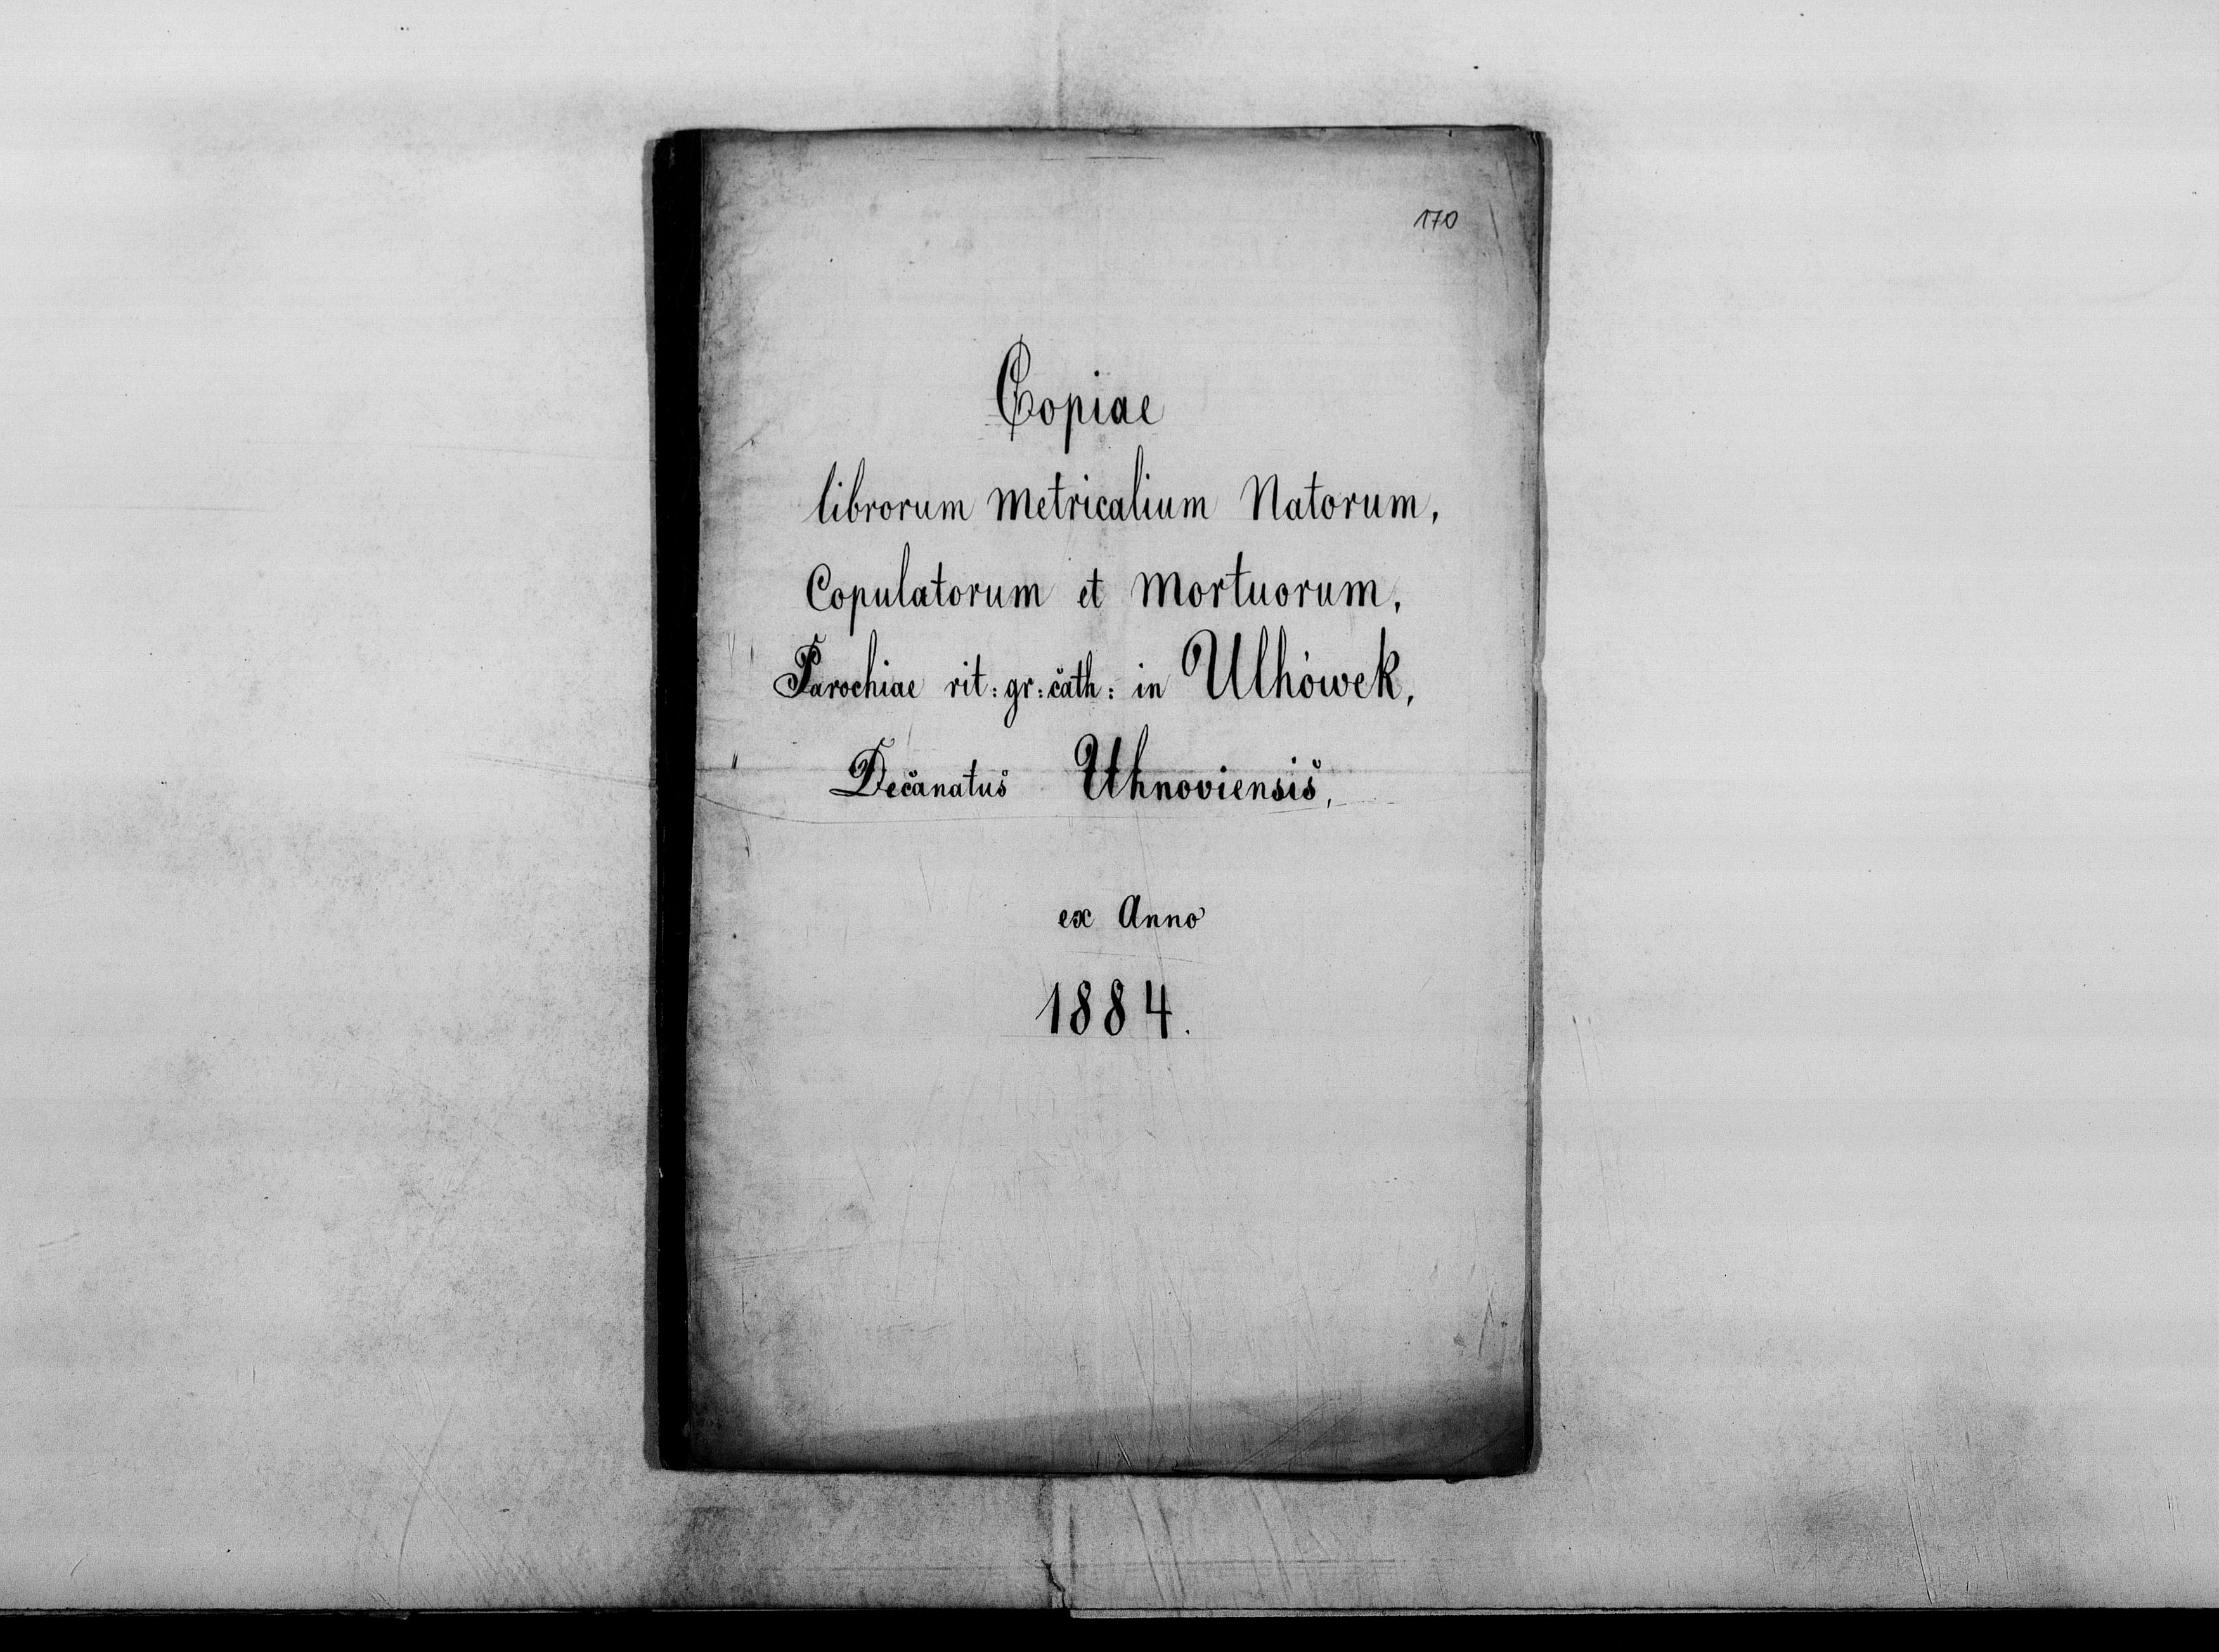 170
Copiae
librorum Metricalium Natorum,
Copulatorum et Mortuorum,
Parochiae rit: gr: cath: in Ulhówek,
Decanatus Uhnoviensis,
ex Anno
1884.